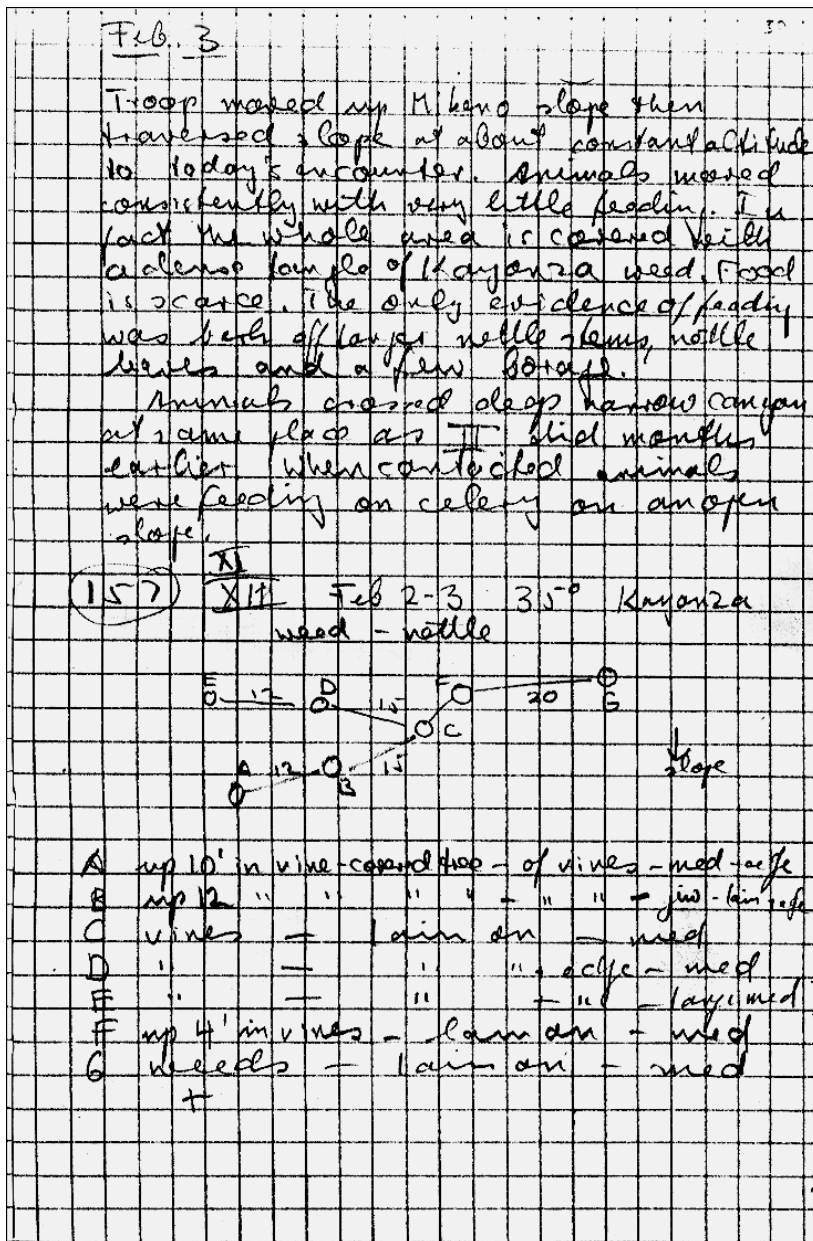 30
Feb. 3
Troop moved up Mikeno slope then
traversed slope at about constant altitude
to today's encounter. Animals moved
consistently with very little feeding. In
fact the whole area is covered with
a dense tangle of Kayonza weed. Food
is scarce. The only evidence of feeding
was bark off larger nettle stems, nettle
leaves and a few borage.
Animals crossed deep narrow canyon
at same place as II did months
earlier. When contacted animals
were feeding on celery on an open
slope.
XI
157 XII Feb 2-3 35° Kayonza
weed - nettle
E 12 D 15 F 20 G
C
A 12 B 15
slope
A up 10' in vine-covered tree - of vines - med - edge
B up 12 " " " " - " " - juv - lain edge
C vines - lain on - med
D " - " " + edge - med
E " - " + " - large med
F up 4' in vines - lain on - med
G weeds - lain on - med
+